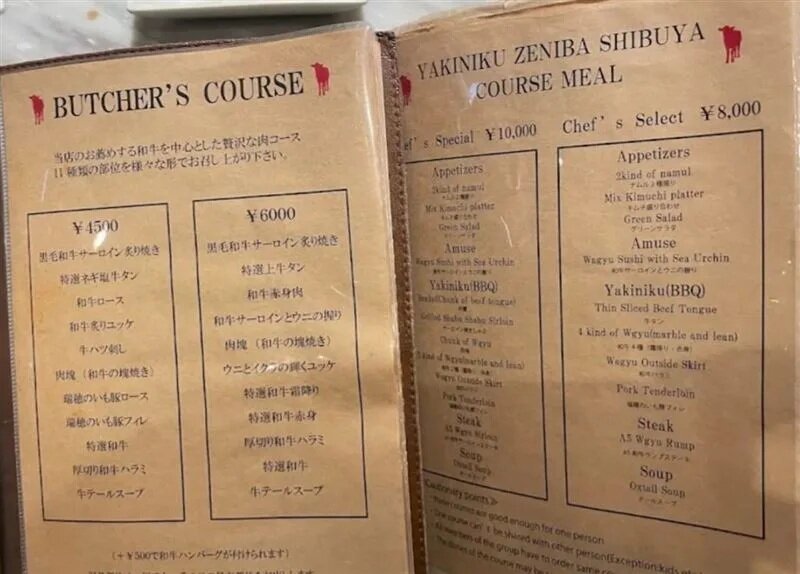 BUTCHER'S COURSE
当店のお薦めする和牛を中心とした贅沢な肉コース
11種類の部位を様々な形でお召し上がり下さい。
¥4500
黒毛和牛サーロイン炙り焼き
特選ネギ塩牛タン
和牛ロース
和牛炙りユッケ
牛ハツ刺し
肉塊(和牛の塊焼き)
瑞穂のいも豚ロース
瑞穂のいも豚フィレ
特選和牛
厚切り和牛ハラミ
牛テールスープ
¥6000
黒毛和牛サーロイン炙り焼き
特選上牛タン
和牛赤身肉
和牛サーロインとウニの握り
肉塊(和牛の塊焼き)
ウニとイクラの輝くユッケ
特選和牛霜降り
特選和牛赤身
厚切り和牛ハラミ
特選和牛
牛テールスープ
(+¥500で和牛ハンバーグが付けられます)
YAKINIKU ZENIBA SHIBUYA
COURSE MEAL
ef's Special ¥10,000
Appetizers
2kind of namul
ナムル2種盛り
Mix Kimuchi platter
キムチ盛り合わせ
Green Salad
グリーンサラダ
Amuse
Wagyu Sushi with Sea Urchin
和牛サーロインとウニの握り
Yakiniku(BBQ)
(Chunk of beef tongue)
Grilled Shabu Shabu Sirloin
サーロイン焼きしゃぶ
Chunk of Wgyu
kind of Wgyu(marble and lean)
Wagyu Outside Skirt
和牛ハラミ
Pork Tenderloin
瑞穂のいも豚フィレ
Steak
A5 Wgyu Sirloin
Soup
Oxtail Soup
テールスープ
Chef's Select ¥8,000
Appetizers
2kind of namul
ナムル2種盛り
Mix Kimuchi platter
キムチ盛り合わせ
Green Salad
グリーンサラダ
Amuse
Wagyu Sushi with Sea Urchin
和牛サーロインとウニの握り
Yakiniku(BBQ)
Thin Sliced Beef Tongue
牛タン
4 kind of Wgyu(marble and lean)
和牛4種(霜降り・赤身)
Wagyu Outside Skirt
和牛ハラミ
Pork Tenderloin
瑞穂のいも豚フィレ
Steak
A5 Wgyu Rump
A5和牛ランプステーキ
Soup
Oxtail Soup
テールスープ
Cautionary points≫
courses are good enough for one person
One course can's be shared with other person(Exception:kids
All members of the group have to order same
The dishes of the course may be